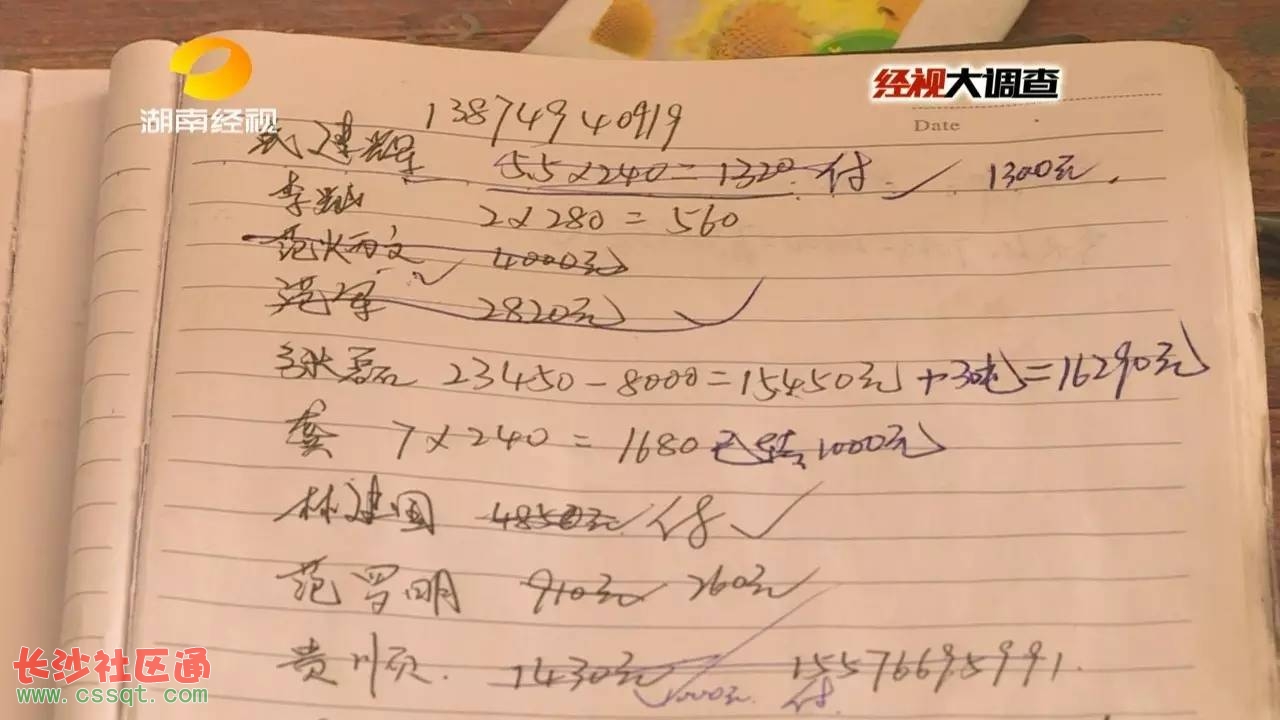 湖南经视
经视大调查
Date
13874940919
建辉 5.5×240=1320 付 ✓ 1300元
李 2×280=560
范 4000元
范军 2820元 ✓
张磊 23450-8000=15450元+30吨=16290元
龚 7×240=1680 已转1000元
林建国 4850元 付 ✓
范罗明 910元 260元
贵川页 1430元 15576695991
1000元 付
长沙社区通
www.cssqt.com